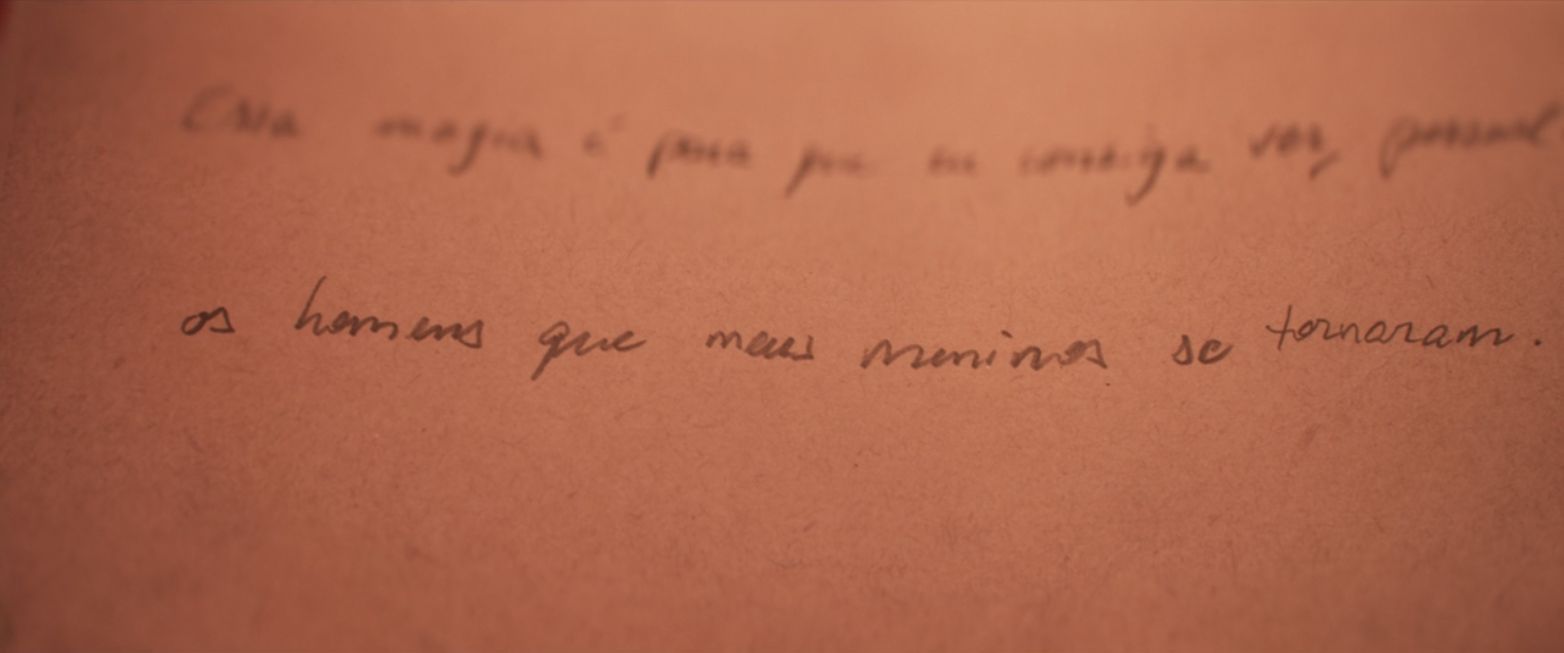 Essa magia é para que eu consiga ver, pessoal
os homens que meus meninos se tornaram.